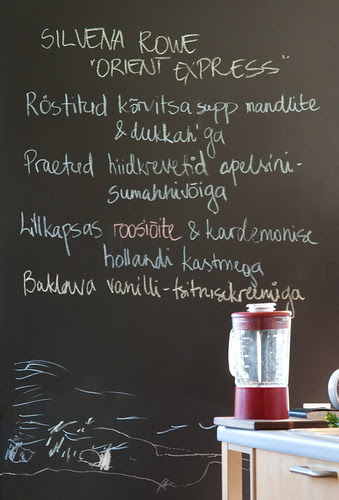 SILVENA ROWE
"ORIENT EXPRESS"
Röstitud kõrvitsa supp mandlite
& dukkah'ga
Praetud hiidkrevetid apelsini-
sumahhivõiga
Lillkapsas roosiõite & kardemonise
hollandi kastmega
Baklava vanilli-tsitrusekreemiga